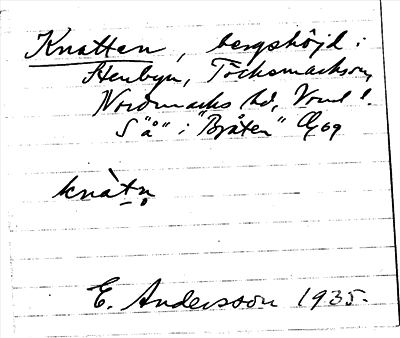 Knatten, bergshöjd i
Stenbyn, Töcksmarks sn,
Nordmarks hd, Vrml.
S "å" i "Bråten" Eg 69
knàtn̥
E. Andersson 1935.